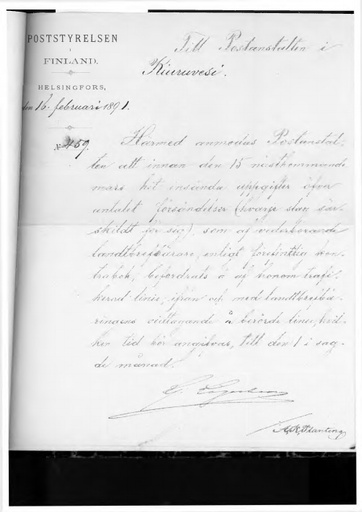 POSTSTYRELSEN
I
FINLAND.
HELSINGFORS,
den 16 februari 1891.
No 459.
Till Postanstalten i
Kiuruvesi.
Härmed anmodas Postanstal-
ten att innan den 15 nästkommande
mars hit insända uppgifter öfver
antalet försändelser (hvarje slag sär-
skildt för sig), som af vederbörande
landtbrefbärare, enligt förseglad kon-
trabok, befordrats å af honom trafi-
kerad linie, ifrån och med landtbrefbä-
ringens vidtagande å berörda linie, hvil-
ken tid bör angifvas, till den 1 i sag-
de månad.